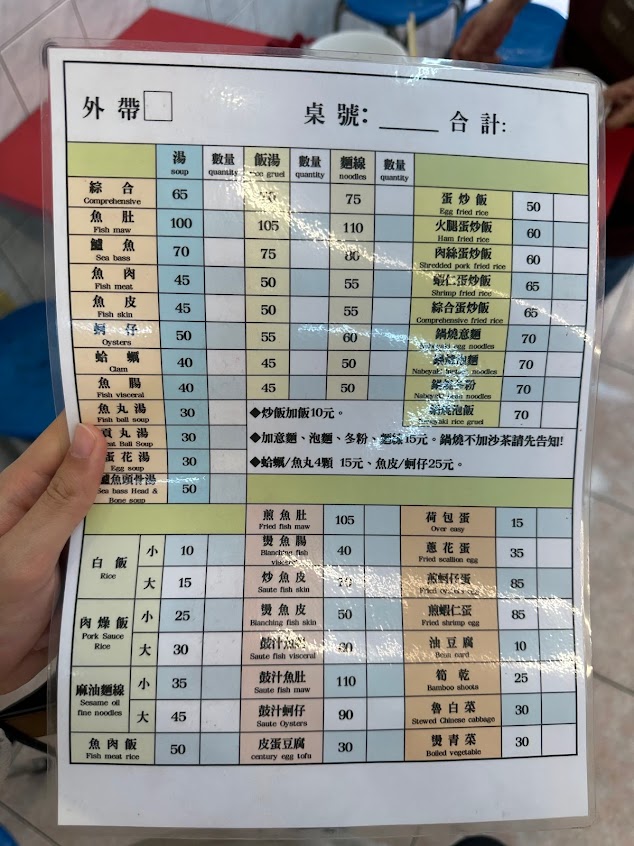 外帶 桌號: 合計:
湯 數量 飯湯 數量 麵線 數量
soup quantity gruel quantity noodles quantity
綜合 65 75
Comprehensive
魚肚 100 105 110
Fish maw
鱸魚 70 75 80
Sea bass
魚肉 45 50 55
Fish meat
魚皮 45 50 55
Fish skin
蚵仔 50 55 60
Oysters
蛤蠣 40 45 50
Clam
魚腸 40 45 50
Fish visceral
魚丸湯 30
Fish ball soup
丸湯 30
Ball Soup
蛋花湯 30
Egg soup
鱸魚頭骨湯 50
Sea bass Head &
Bone soup
蛋炒飯 50
Egg fried rice
火腿蛋炒飯 60
Ham fried rice
肉絲蛋炒飯 60
Shredded pork fried rice
蝦仁蛋炒飯 65
Shrimp fried rice
綜合蛋炒飯 65
Comprehensive fried rice
鍋燒意麵 70
egg noodles
泡麵 70
Nabeyaki noodles
粉 70
Nabeyaki noodles
泡飯 70
rice gruel
◆炒飯加飯10元。
◆加意麵、泡麵、冬粉、15元。鍋燒不加沙茶請先告知!
◆蛤蠣/魚丸4顆 15元、魚皮/蚵仔25元。
白飯 小 10
Rice
大 15
肉燥飯 小 25
Pork Sauce
Rice
大 30
麻油麵線 小 35
Sesame oil
fine noodles
大 45
魚肉飯 50
Fish meat rice
煎魚肚 105
Fried fish maw
燙魚腸 40
Blanching fish
炒魚皮
Saute fish skin
燙魚皮 50
Blanching fish skin
豉汁
Saute fish visceral
豉汁魚肚 110
Saute fish maw
豉汁蚵仔 90
Saute Oysters
皮蛋豆腐 30
century egg tofu
荷包蛋 15
Over easy
蔥花蛋 35
Fried scallion egg
煎蚵仔蛋 85
Fried egg
煎蝦仁蛋 85
Fried shrimp egg
油豆腐 10
Bean curd
筍乾 25
Bamboo shoots
魯白菜 30
Stewed Chinese cabbage
燙青菜 30
Boiled vegetable